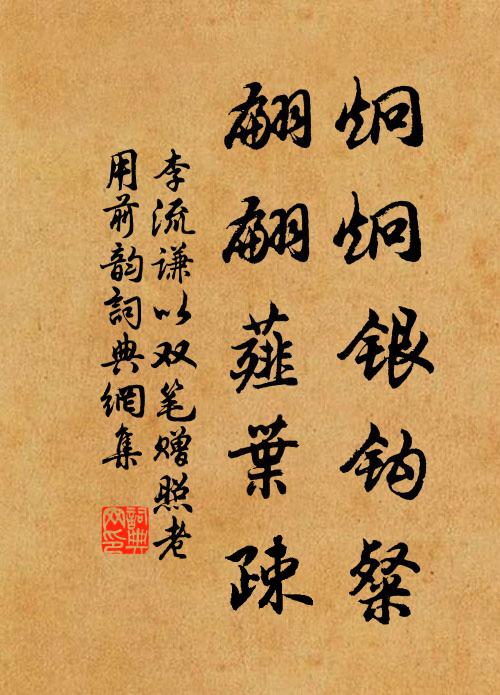 炯炯銀钩粲
翩翩薤葉疎
李流谦以双笔赠照老
用前韵詞典網集
詞典网印